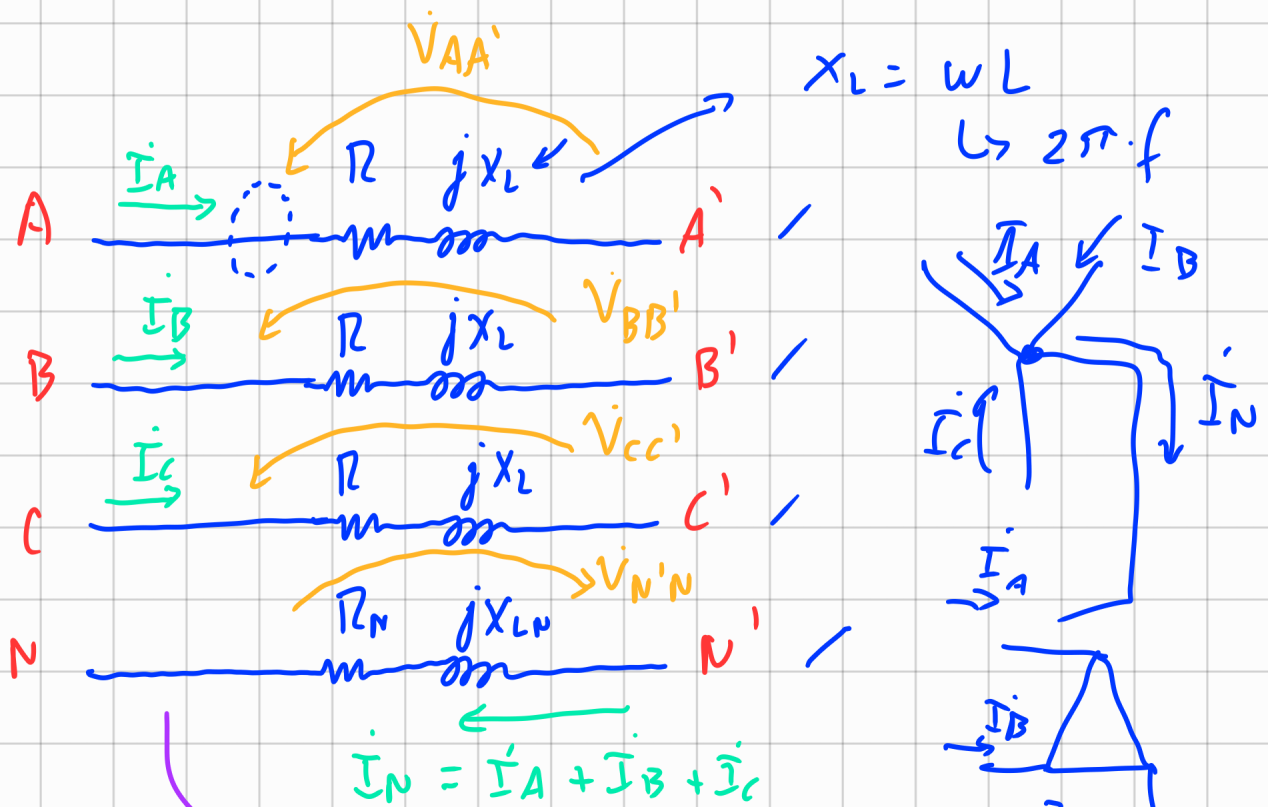 V̇AA'
XL = wL
↳ 2π·f
İA
R jXL
A A'
İA İB
İB
R jXL V̇BB'
B B'
İN
İC
İC
R jXL V̇CC'
C C'
İA
RN jXLN V̇N'N
N N'
İB
İN = İA + İB + İC